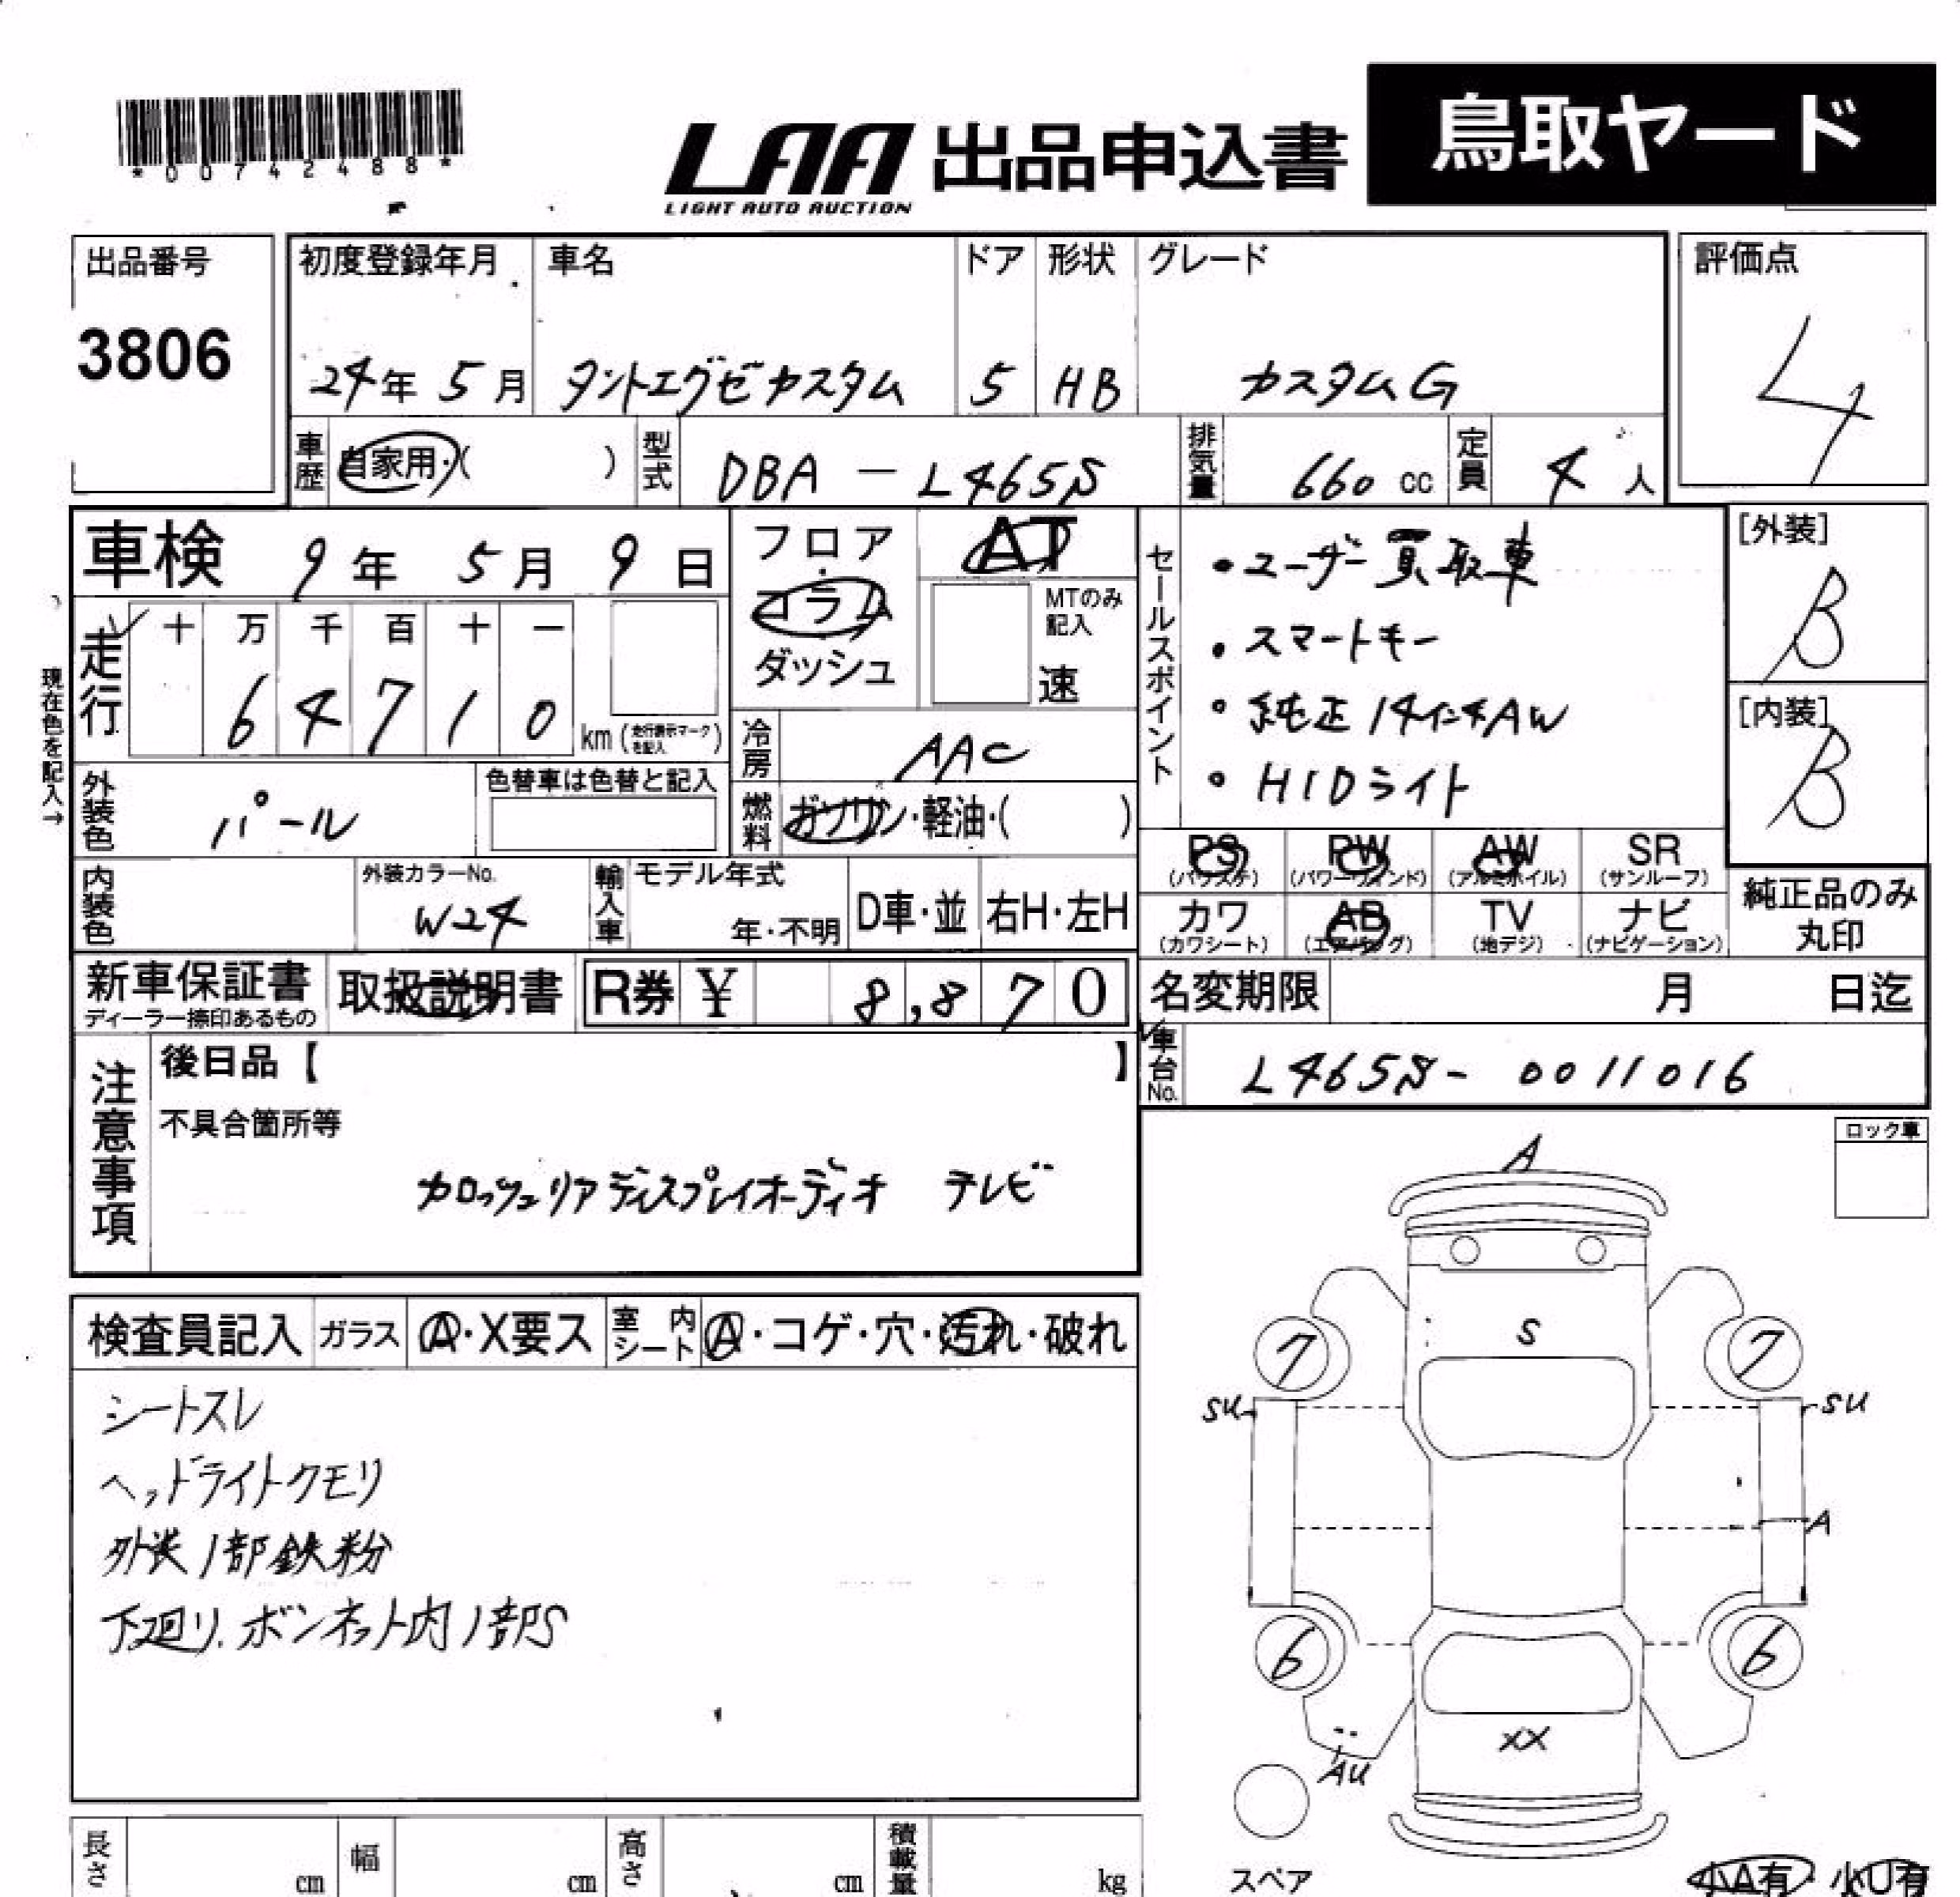 *00742488*
LAA 出品申込書 鳥取ヤード
LIGHT AUTO AUCTION
出品番号 初度登録年月 車名 ドア 形状 グレード 評価点
3806 24年 5月 タントエグゼカスタム 5 HB カスタムG 4
車歴 自家用・( ) 型式 DBA-L465S 排気量 660 cc 定員 4 人
車検 9年 5月 9日 フロア・コラム ダッシュ AT MTのみ記入 速
セールスポイント
・ユーザー買取車
・スマートキー
・純正14インチAW
・HIDライト
[外装] B
[内装] B
現在色を記入→
走行 十 万 千 百 十 一
6 4 7 1 0 km (走行表示マークを記入)
冷房 AAC
外装色 パール 色替車は色替と記入 燃料 ガソリン・軽油・( )
PS (パワステ) PW (パワーウィンド) AW (アルミホイル) SR (サンルーフ)
内装色 外装カラーNo. W24 輸入車 モデル年式 年・不明 D車・並 右H・左H
カワ (カワシート) AB (エアバッグ) TV (地デジ) ナビ (ナビゲーション) 純正品のみ丸印
新車保証書 ディーラー捺印あるもの 取扱説明書 R券 ¥ 8,870 名変期限 月 日迄
車台No. L465S-0011016
注意事項 後日品【 】
不具合箇所等
カロッツェリアディスプレイオーディオ テレビ
ロック車
検査員記入 ガラス A・X要ス 室内シート A・コゲ・穴・汚れ・破れ
シートスレ
ヘッドライトクモリ
外装1部鉄粉
下廻り、ボンネット内1部S
A
S
7 7
SU SU
A
6 6
XX
AU
スペア 小A有・小U有
長さ cm 幅 cm 高さ cm 積載量 kg